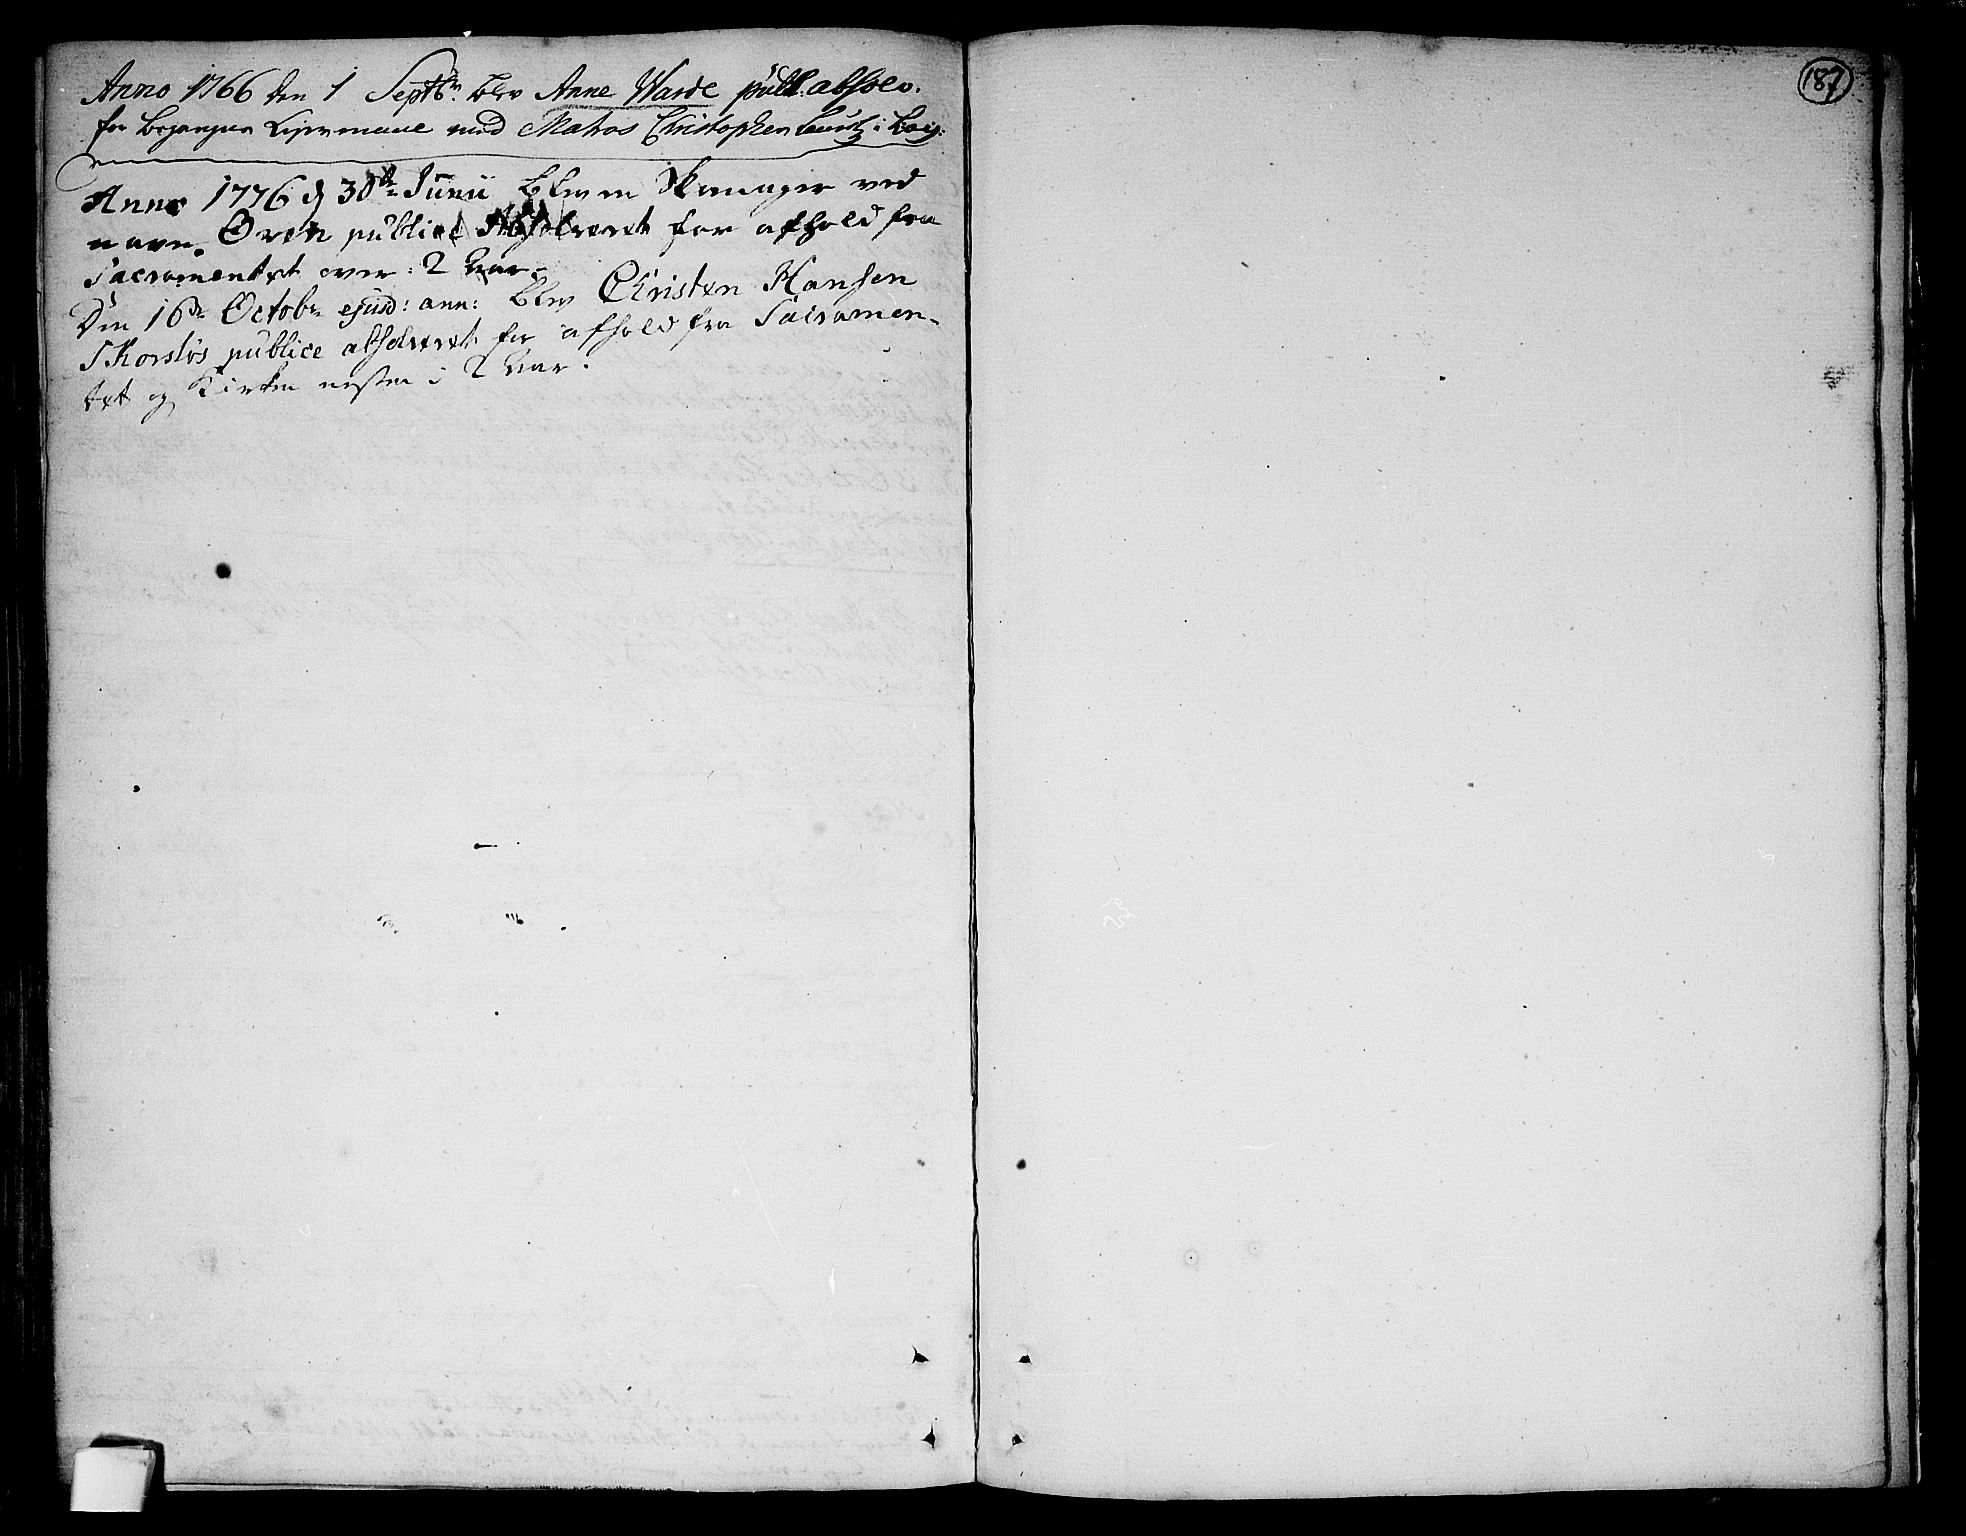 187
Anno 1766 den 1 Septbr. blev Anne Warde publ. absolv.
for begangen Leyermaal med Matros Christopher
Anno 1776 d 30te Junii blev en ved
navn Oven publice Absolveret for afhold fra
Sacramentet over 2 Aar.
Den 16de Octobr ejusd: ann: blev Christen Hansen
Skorsløs publice absolveret for afhold fra Sacramen-
tet og Kirken nesten i 2 Aar.